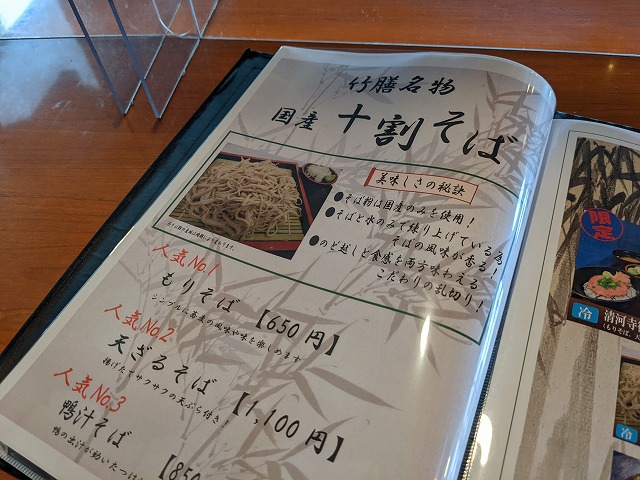 竹膳名物
国産 十割そば
美味しさの秘訣
●そば粉は国産のみを使用！
●そばと水のみで練り上げている為
そばの風味が香る！
●のど越しと食感を両方味わえる
こだわりの乱切り！
人気No.1
もりそば 【650円】
シンプルに蕎麦の風味や味を楽しめます
人気No.2
天ざるそば 【1,100円】
揚げたてサクサクの天ぷら付き！
人気No.3
鴨汁そば 【850
鴨の出汁が効いたつけ
限定
冷 清河寺
（もりそば、天
冷
冷